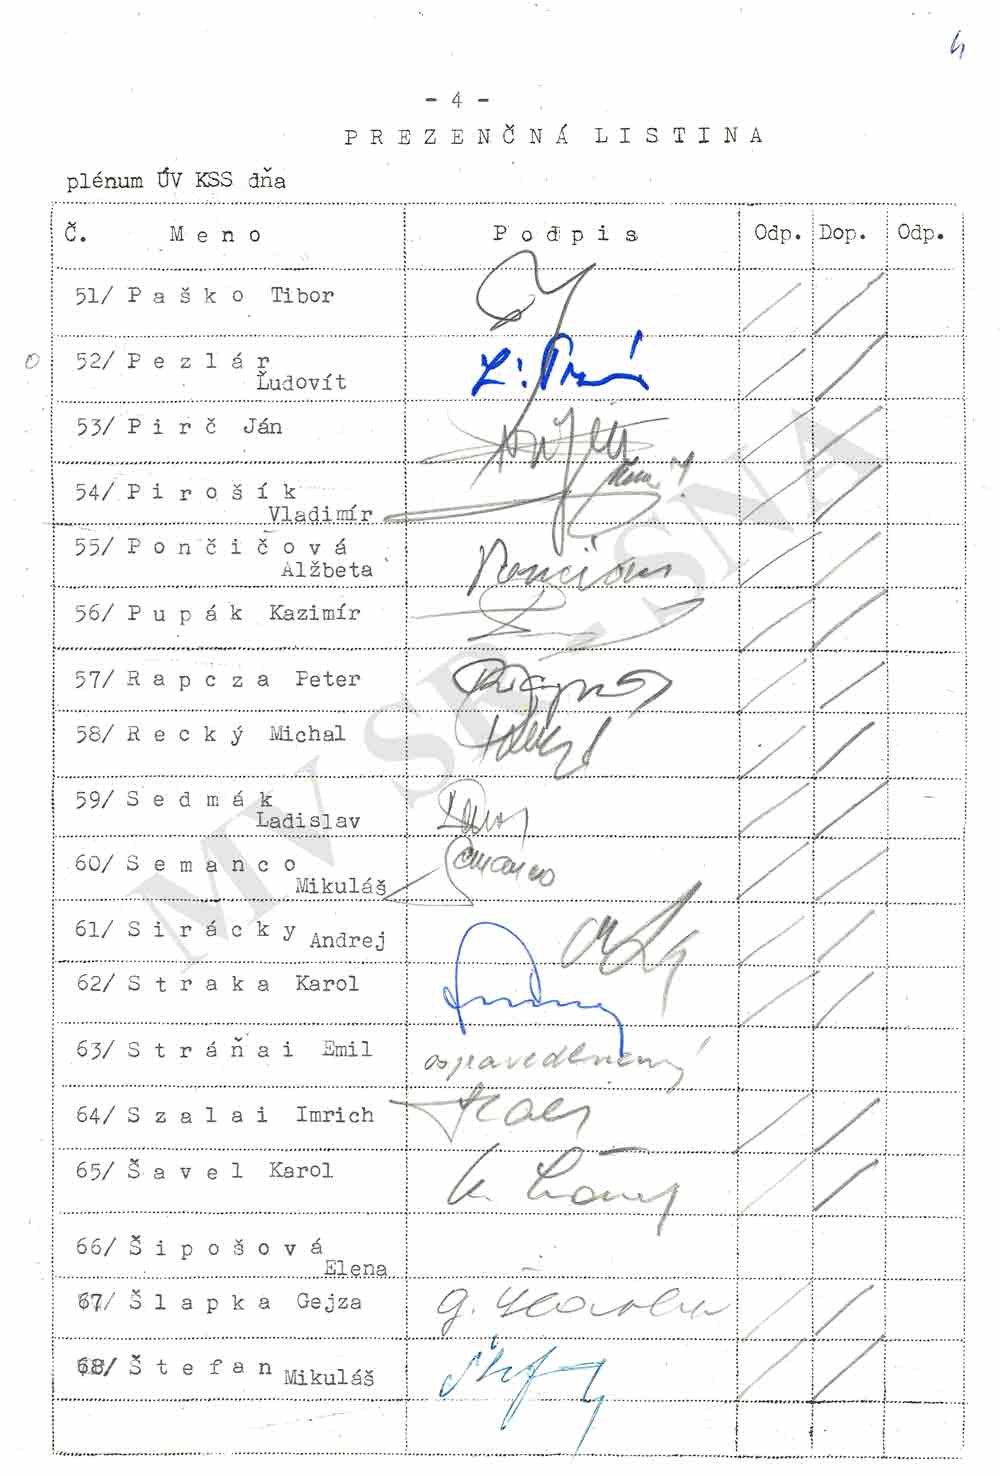 4
- 4 -
PREZENČNÁ LISTINA
plénum ÚV KSS dňa
Č. Meno Podpis Odp. Dop. Odp.
51/ Paško Tibor
52/ Pezlár
Ľudovít
53/ Pirč Ján
54/ Pirošík
Vladimír
55/ Pončičová
Alžbeta
56/ Pupák Kazimír
57/ Rapcza Peter
58/ Recký Michal
59/ Sedmák
Ladislav
60/ Semanco
Mikuláš
61/ Sirácky Andrej
62/ Straka Karol
63/ Stráňai Emil ospravedlnený
64/ Szalai Imrich
65/ Šavel Karol
66/ Šipošová
Elena
67/ Šlapka Gejza
68/ Štefan Mikuláš
MV SR - SNA